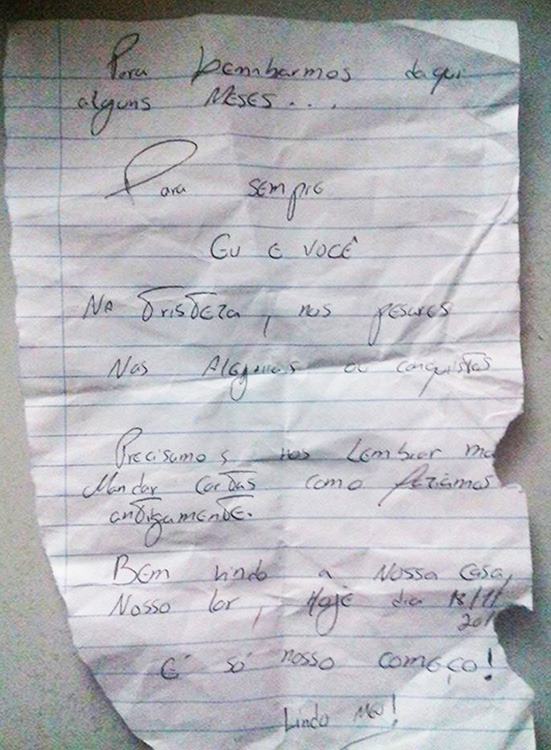 Para lembrarmos daqui
alguns MESES...
Para sempre
Eu e você
Na tristeza, nos pesares
Nas Alegrias ou conquistas
Precisamos nos Lembrar
Mandar cartas como fazíamos
antigamente.
Bem vindo a Nossa casa,
Nosso lar, Hoje dia 18/11
20
É só nosso começo!
Lindo Meu!